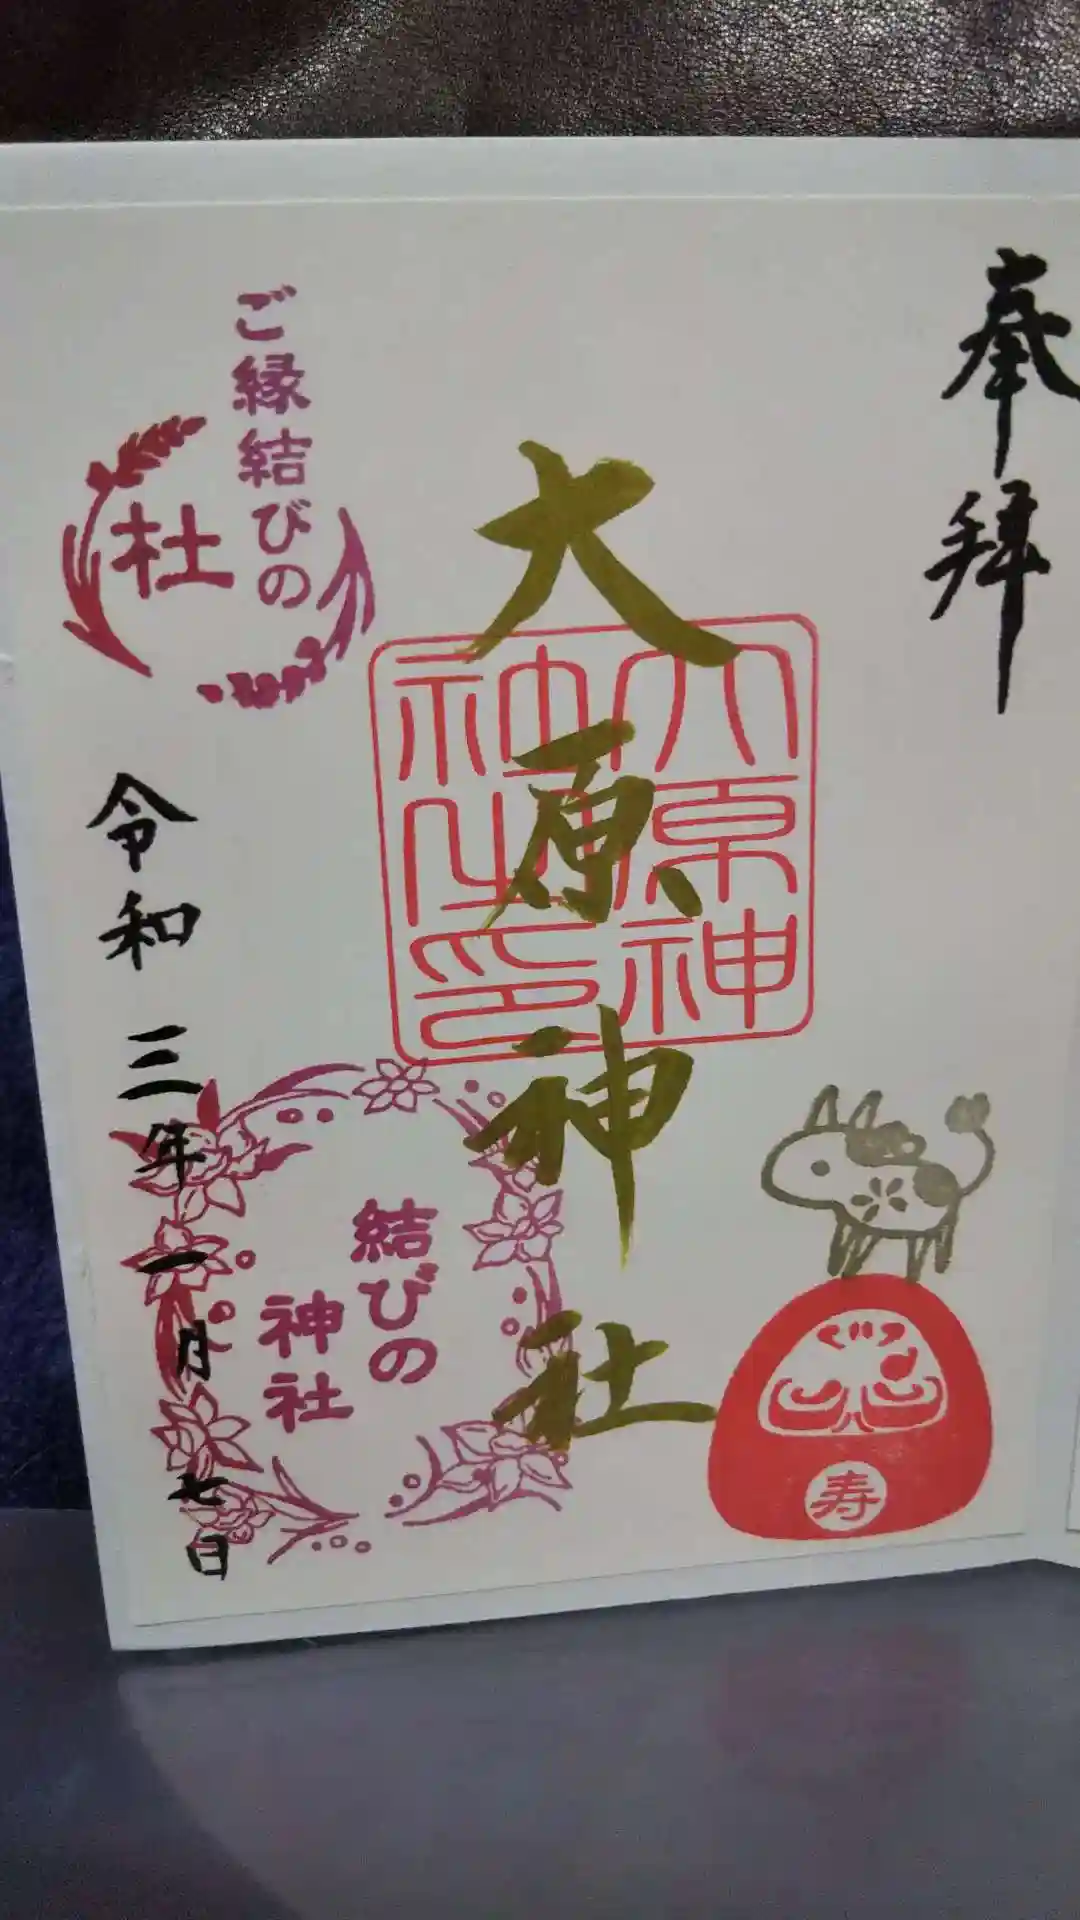 奉拝
大原神社
大原神
社之印
ご縁結びの
杜
令和三年一月七日
結びの
神社
寿